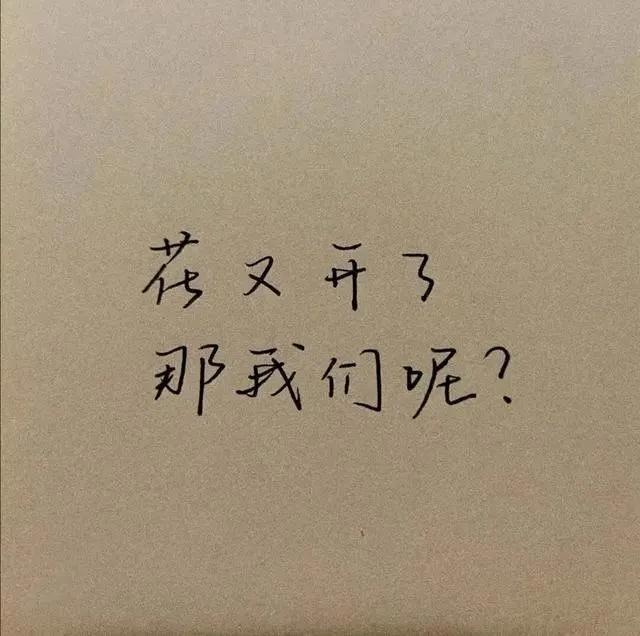 花又开了
那我们呢?